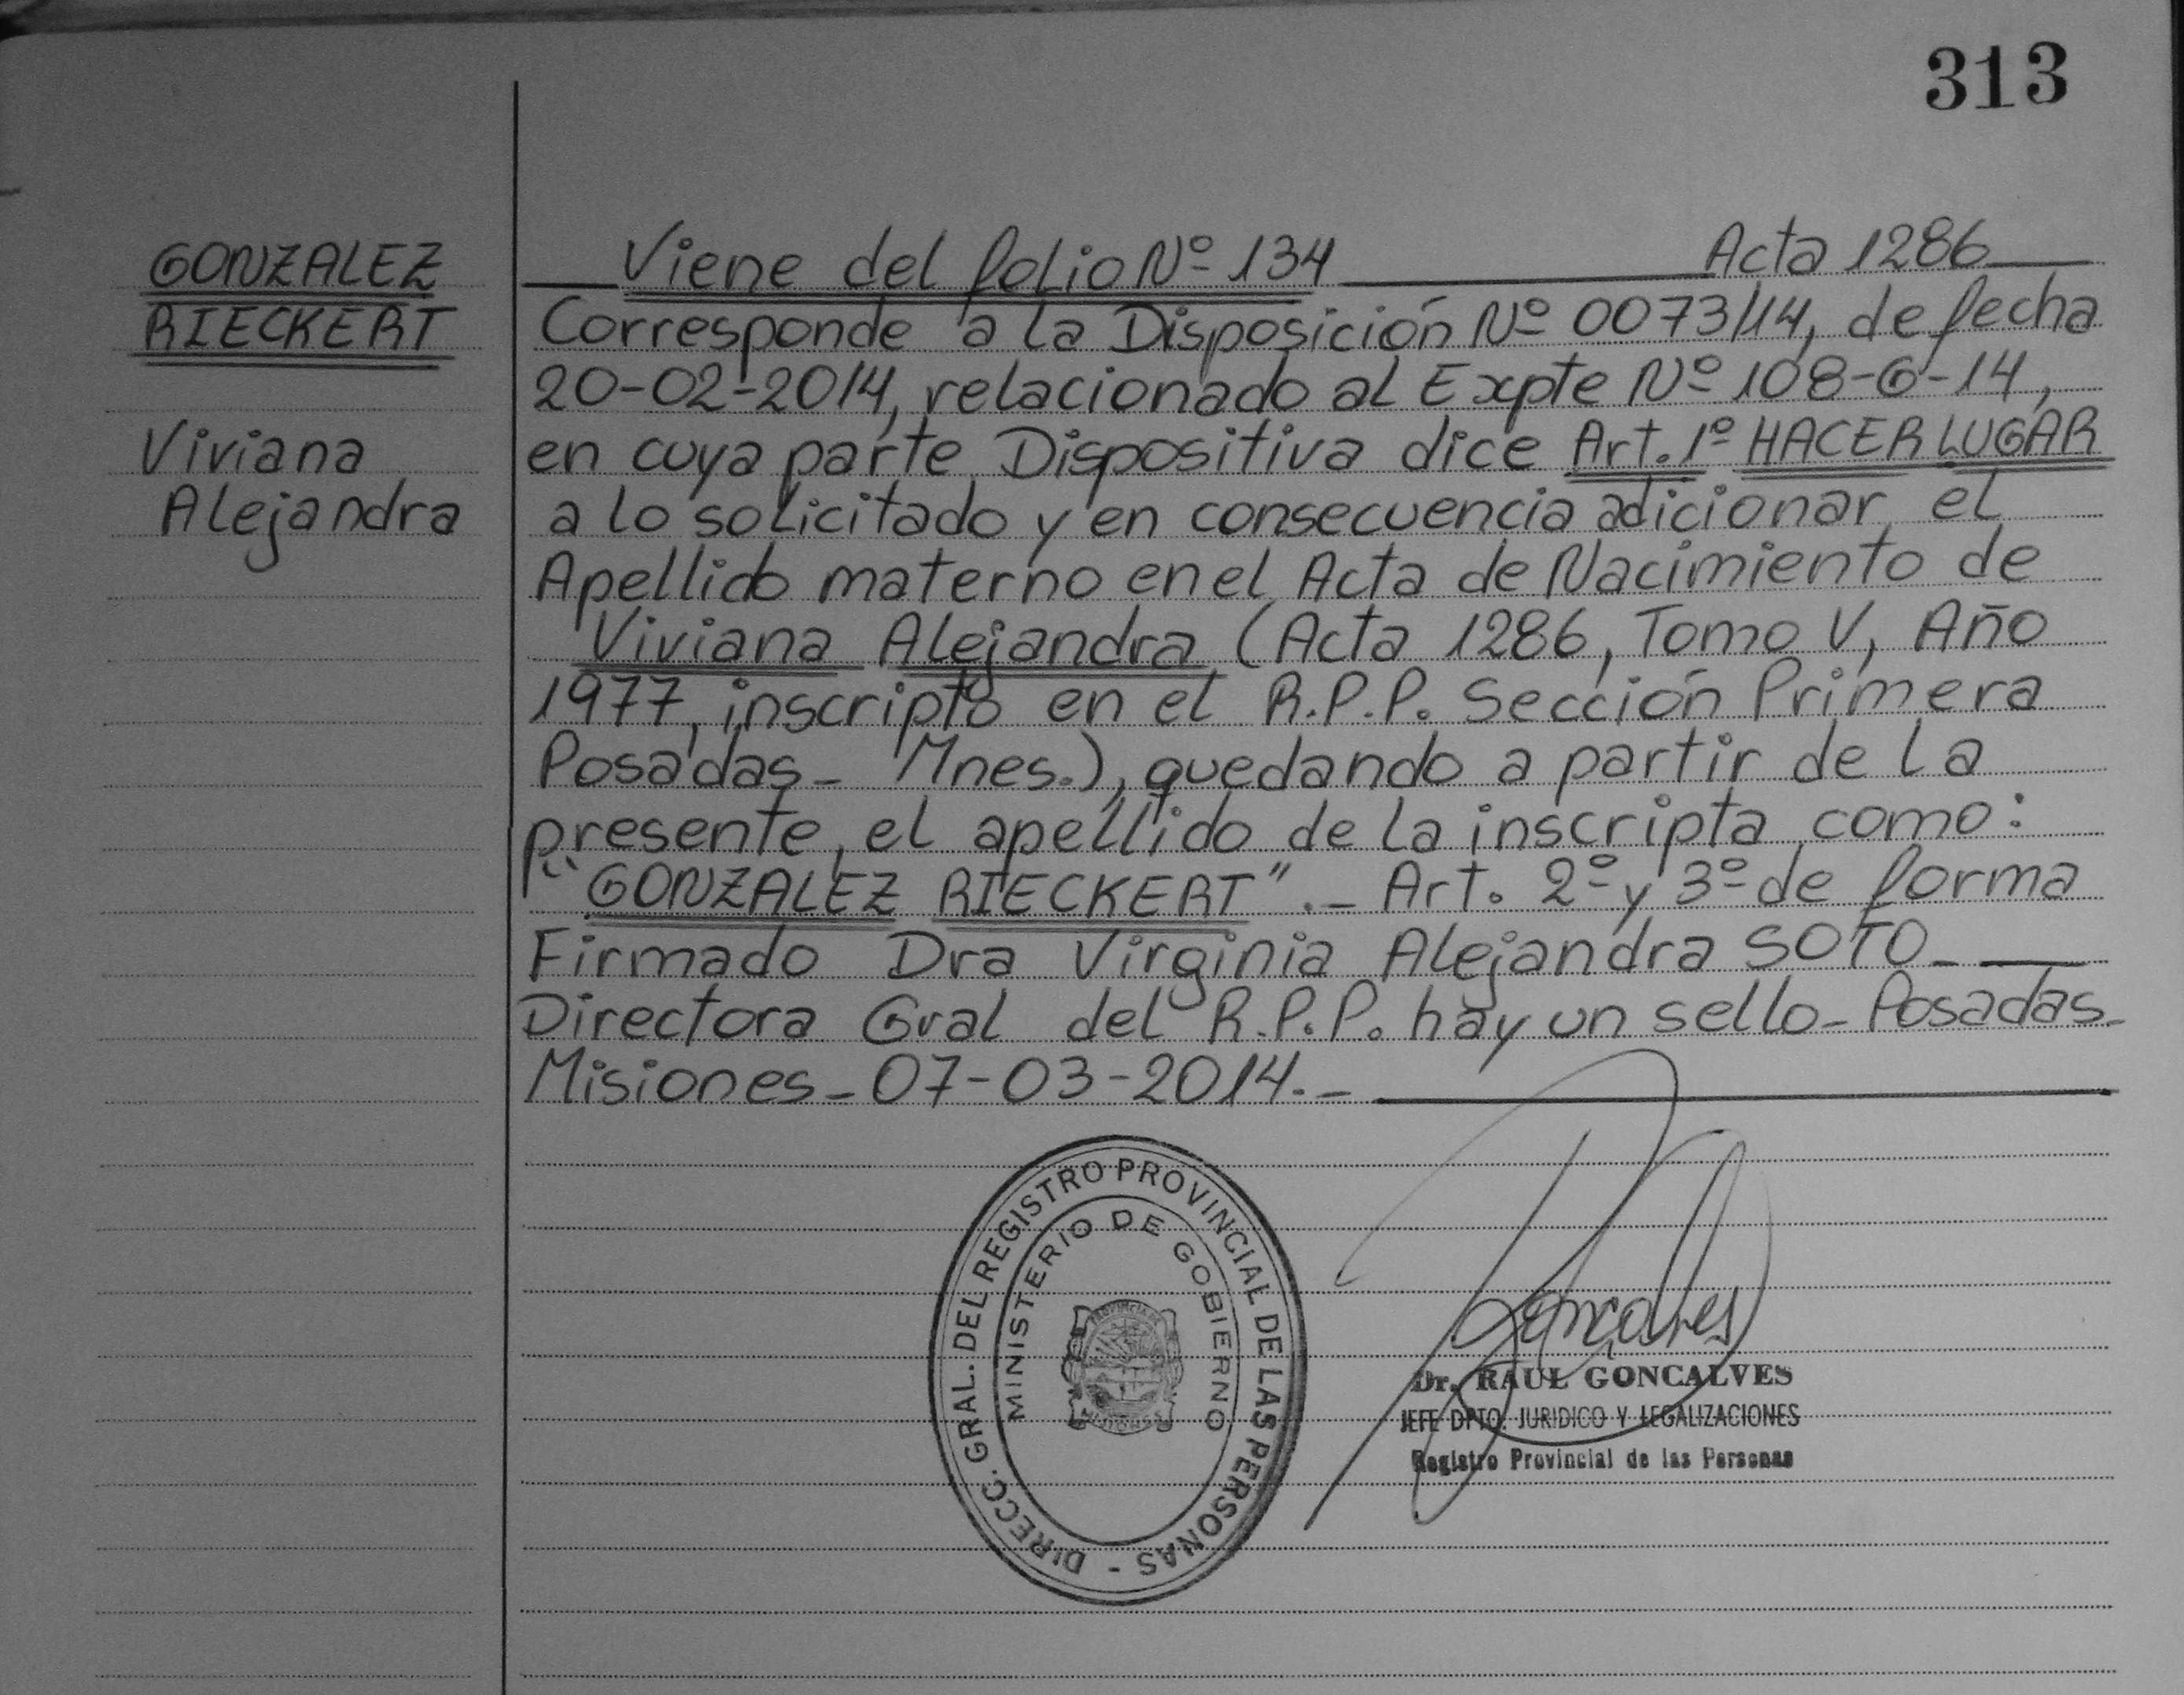 313
GONZALEZ
RIECKERT
Viviana
Alejandra
Viene del folio Nº 134 Acta 1286
Corresponde a la Disposición Nº 0073/14, de fecha
20-02-2014, relacionado al Expte Nº 108-G-14,
en cuya parte Dispositiva dice Art. 1º HACER LUGAR
a lo solicitado y en consecuencia adicionar el
Apellido materno en el Acta de Nacimiento de
Viviana Alejandra (Acta 1286, Tomo V, Año
1977, inscripto en el R.P.P. Sección Primera
Posadas - Mnes.), quedando a partir de la
presente, el apellido de la inscripta como:
"GONZALEZ RIECKERT". - Art. 2º y 3º de forma
Firmado Dra Virginia Alejandra SOTO -
Directora Gral del R.P.P. hay un sello - Posadas -
Misiones - 07-03-2014. -
DIRECC. GRAL. DEL REGISTRO PROVINCIAL DE LAS PERSONAS -
MINISTERIO DE GOBIERNO
PROVINCIA
MISIONES
Goncalves
Dr. RAUL GONCALVES
JEFE DPTO. JURIDICO Y LEGALIZACIONES
Registro Provincial de las Personas